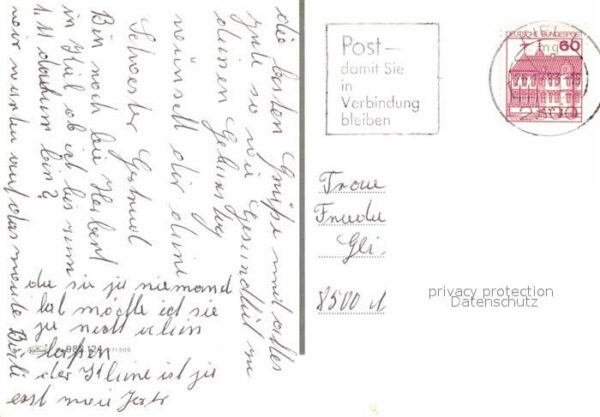 die besten Grüße und alles
gute so wie Gesundheit zu
deinen Geburtstag
wünscht dir deine
Schwester Gertrud
Bin noch bei Herbert
in Kiel ob ich bis zum
1.11 daheim bin?
wir warten auf das zweite
da sie ja niemand
hat möchte ich sie
ja nicht allein
lassen
der Kleine ist ja
erst
Post –
damit Sie
in
Verbindung
bleiben
DEUTSCHE BUNDESPOST
60
Frau
8500
privacy protection
Datenschutz